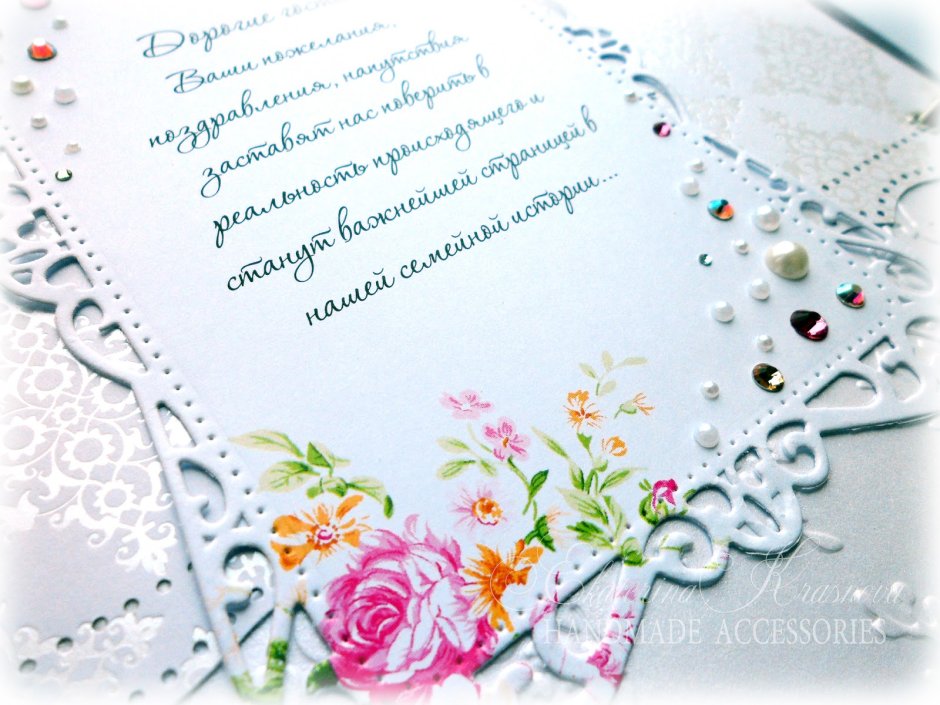 Дорогие гост
Ваши пожелания,
поздравления, напутствия
заставят нас поверить в
реальность происходящего и
станут важнейшей страницей в
нашей семейной истории...
© Ekaterina Krasnova
HANDMADE ACCESSORIES